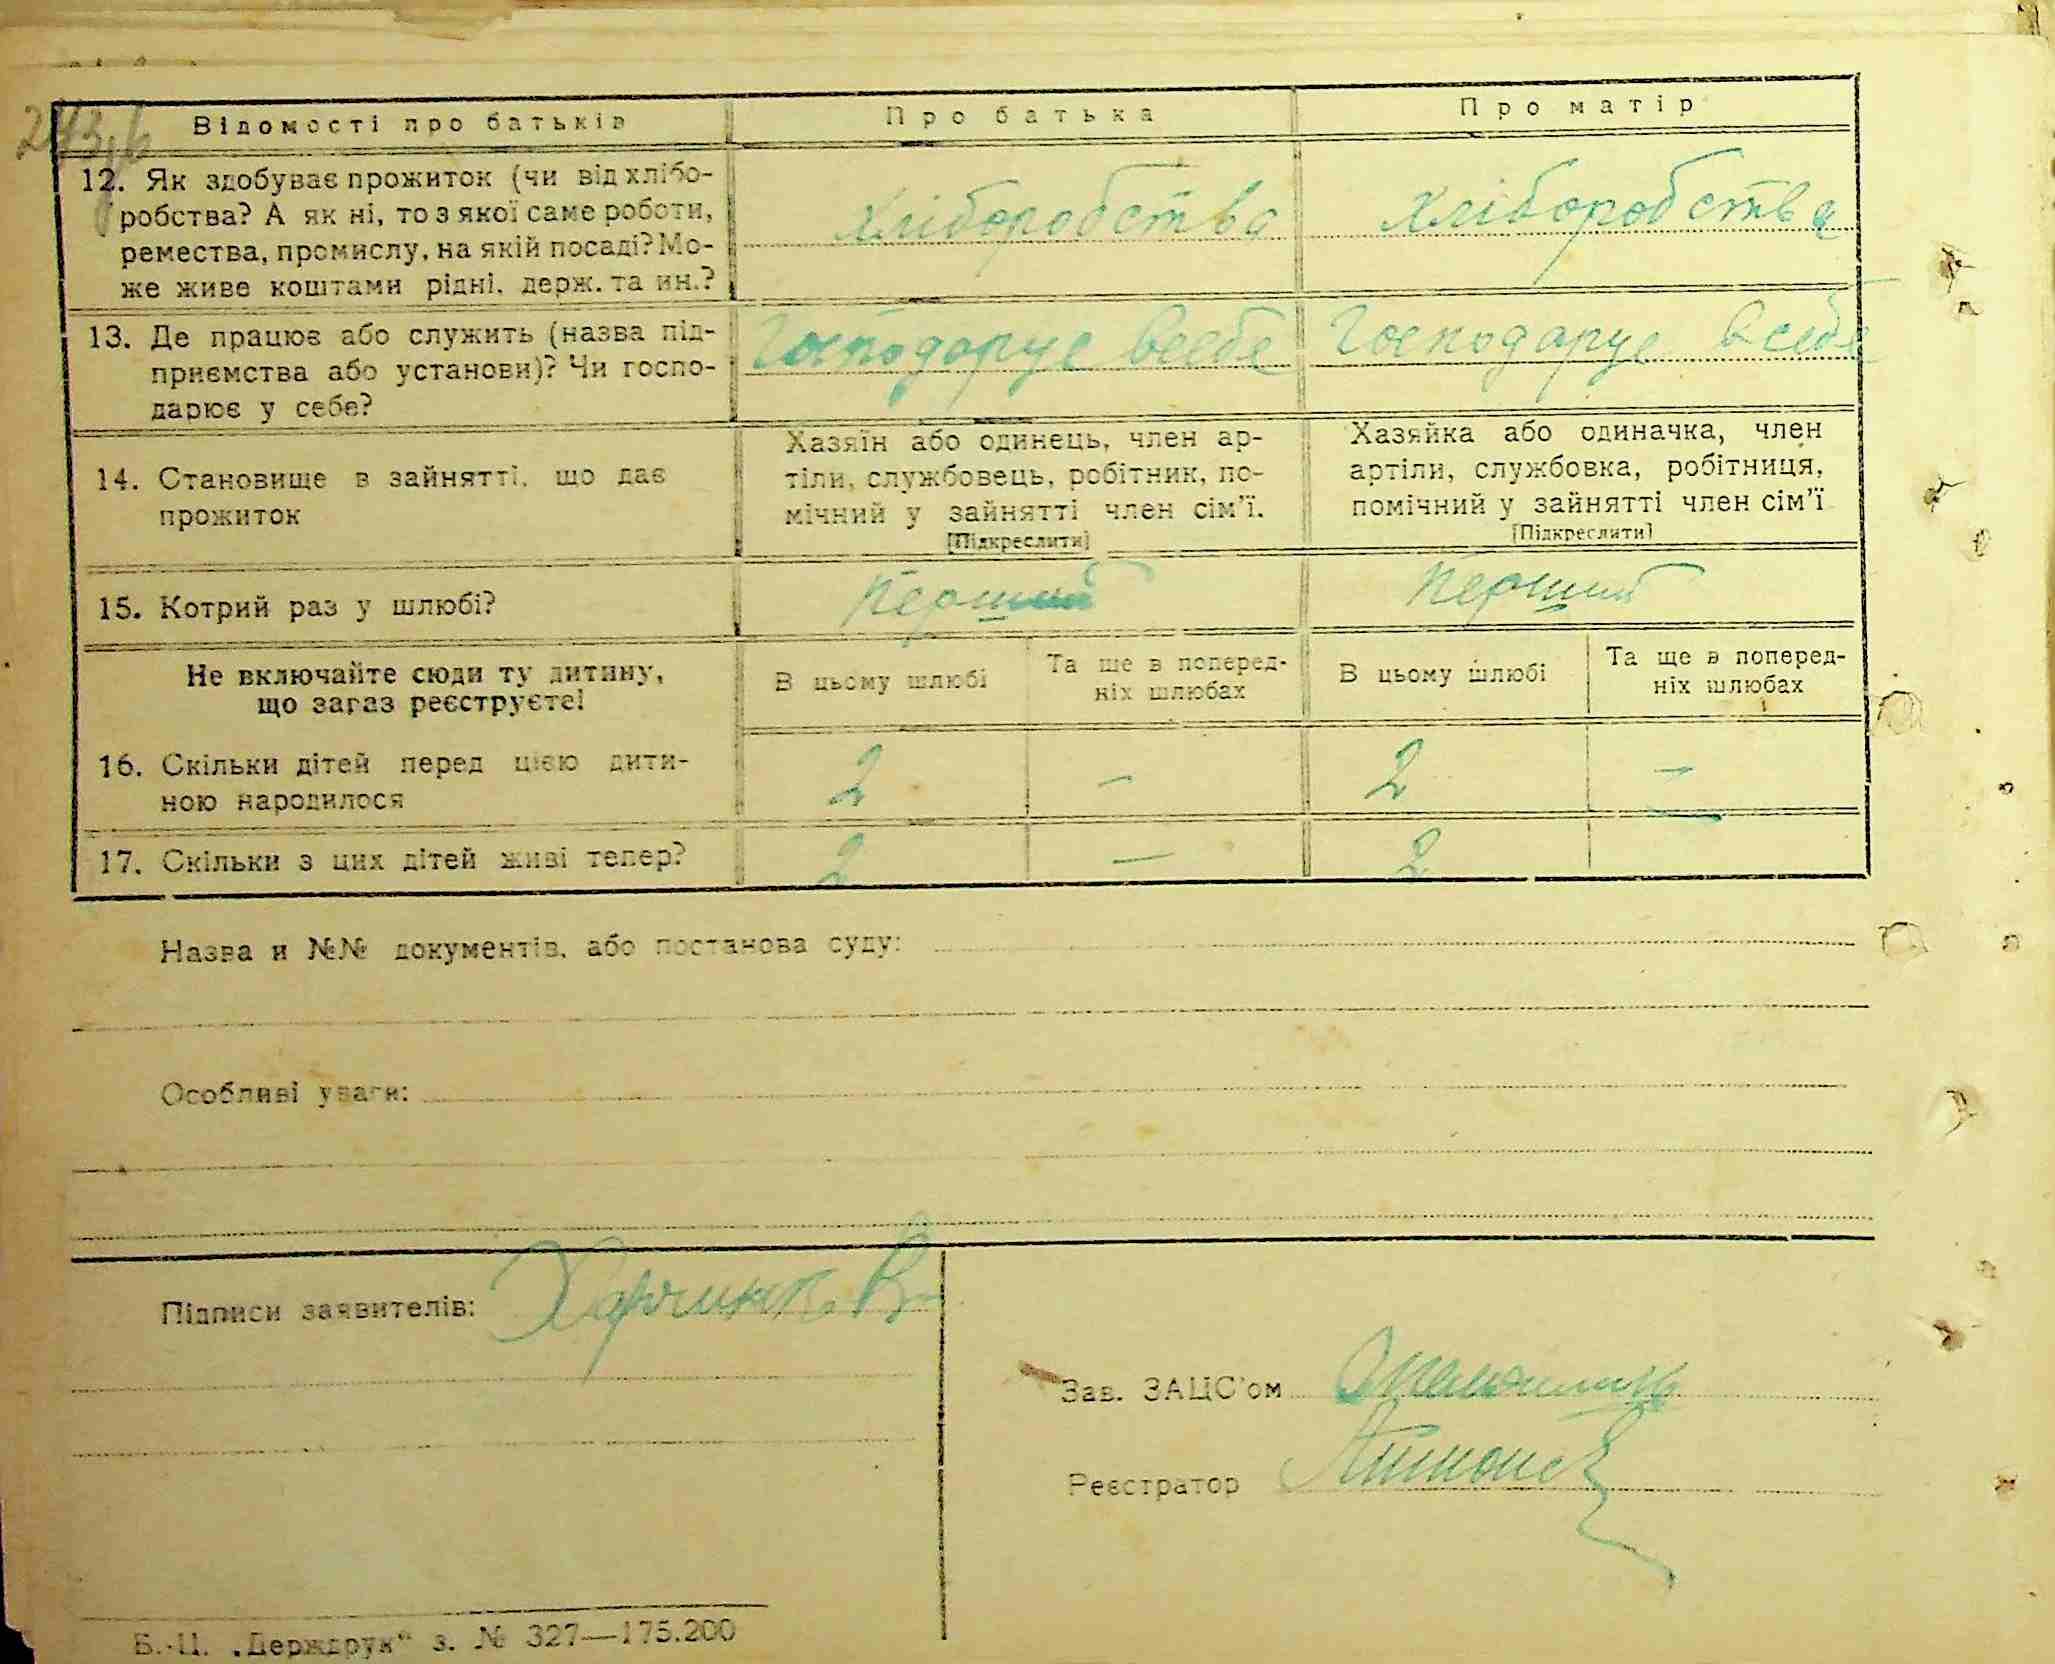 Відомості про батьків Про батька Про матір
12. Як здобуває прожиток (чи від хлібо-
робства? А як ні, то з якої саме роботи,
ремества, промислу, на якій посаді? Мо-
же живе коштами рідні, держ. та ин.?
хліборобства хліборобства
13. Де працює або служить (назва під-
приємства або установи)? Чи госпо-
дарює у себе?
Господарує всебе Господарує всебе
14. Становище в зайнятті, що дає
прожиток
Хазяїн або одинець, член ар-
тіли, службовець, робітник, по-
мічний у зайнятті член сім'ї.
[Підкреслити]
Хазяйка або одиначка, член
артіли, службовка, робітниця,
помічний у зайнятті член сім'ї
[Підкреслити]
15. Котрий раз у шлюбі? Перший Перший
Не включайте сюди ту дитину,
що загаз реєструєте!
В цьому шлюбі
Та ще в поперед-
ніх шлюбах
В цьому шлюбі
Та ще в поперед-
ніх шлюбах
16. Скільки дітей перед цією дити-
ною народилося
2 — 2 —
17. Скільки з цих дітей живі тепер? 2 — 2
Назва и №№ документів, або постанова суду:
Особливі уваги:
Підписи заявителів:
Зав. ЗАЦС'ом
Реєстратор
Б.-Ц. „Держдрук" з. № 327—175.200